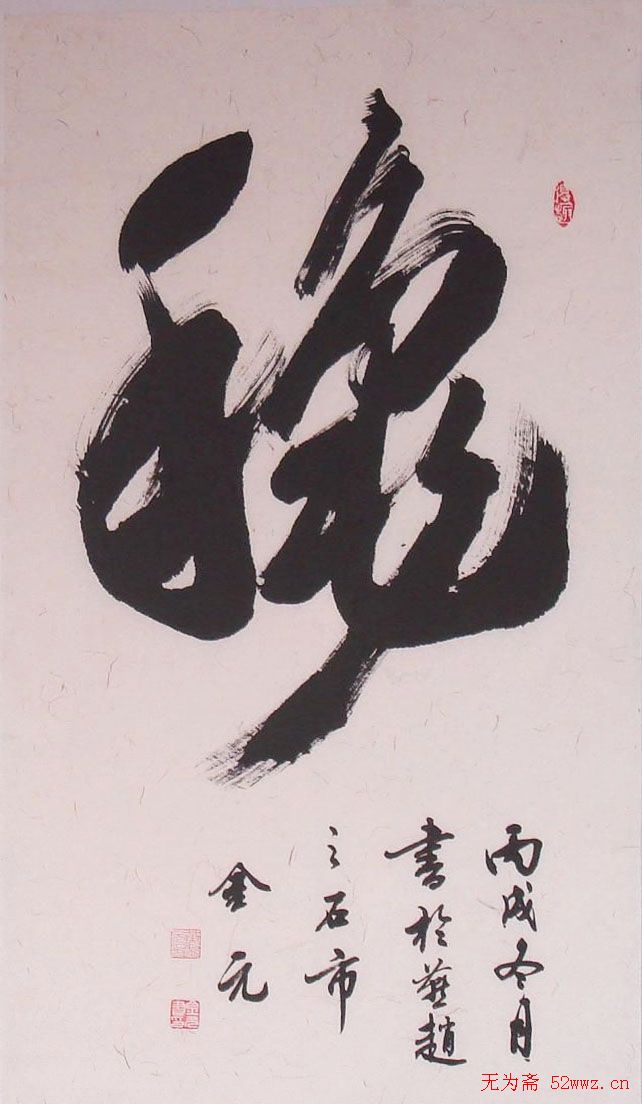 丙戌冬月
書於燕趙
之石市
金元
无为斋 52wwz.cn